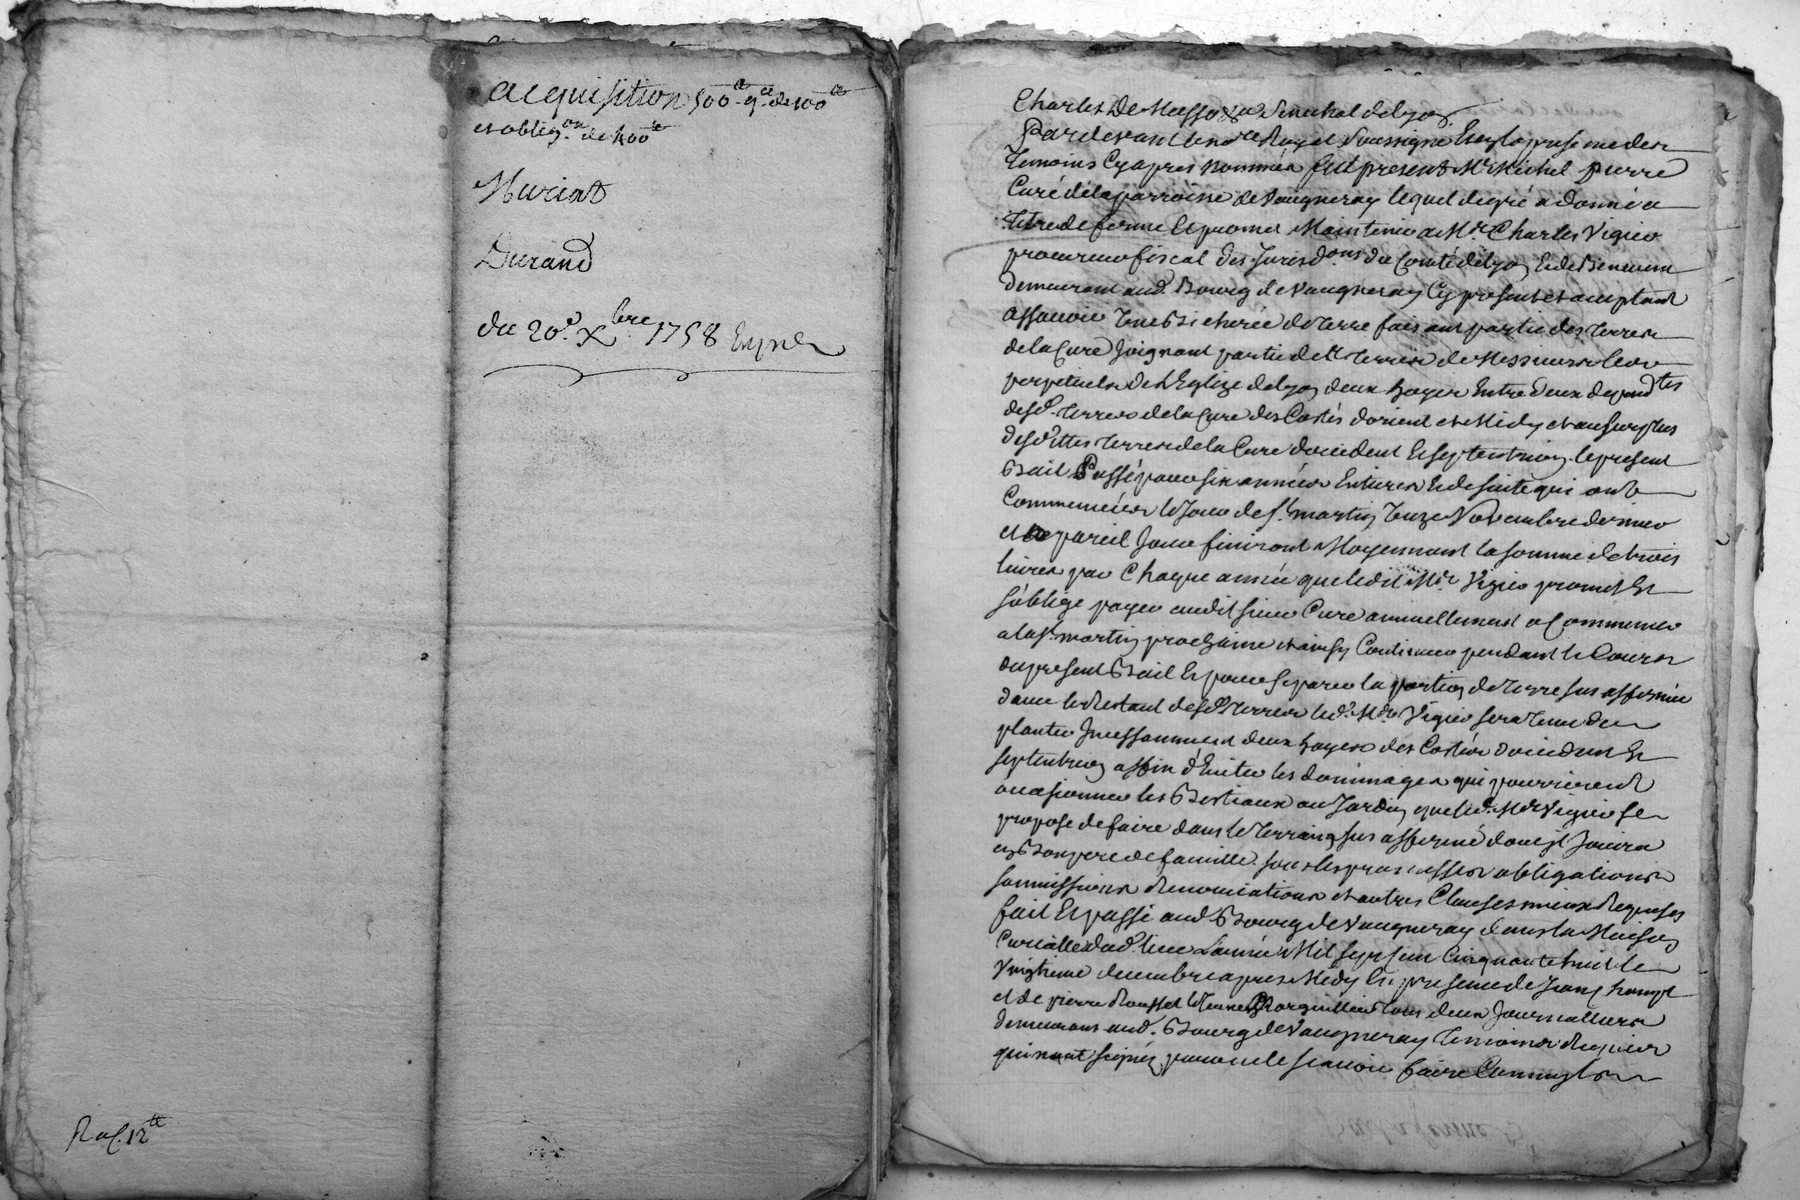 acquisition 500lt q.ce de 100lt
et oblig.on de 400lt
Muriat
Durand
du 20.e Xbre 1758
Ral. 12lt
Charles De Masso &a Senechal de Lyon.
Pardevant le no.re Royal Soussigné Et en la presence des
Temoins Cy apres nommés fut present Mr Michel pierre
Curé de la parroisse de Vaugneray lequel de gré a donné a
titre de ferme Et promet Maintenir a Mre Charles Vigier
procureur fiscal des Jurisd.ons du Comté de Lyon Et de
demeurant aud. Bourg de Vaugneray Cy present et acceptant
assavoir Une Bicherée de Terre faisant partie des terres
de la Cure Joignant partie de terres de Messieurs les
perpetuels De L'Eglize de Lyon deux hayes Entre deux depend.tes
desd. terres de la Cure des Costés d'orient et Midy et au surplus
desdittes terres de la Cure d'occident Et septentrion. le present
Bail Passé pour six années Entieres Et de suite qui ont
Commencées le Jour de st martin Onze Novembre dernier
et a pareil Jour finiront Moyennant la somme de trois
livres par Chaque année que ledit Mre Vigier promet Et
s'oblige payer audit sieur Curé annuellement a Commencer
a la st martin prochaine et ainsy Continuer pendant le Cours
du present Bail Et pour separer la portion de terre sus affermée
d'avec le Restant desd. terres led. Mre Vigier sera Tenu de
planter Incessamment deux hayes des Costés d'occident Et
septentrion affin d'Eviter les dommages qui pourroient
occasionner les Bestiaux au Jardin que led. Mre Vigier se
propose de faire dans le terrain sus affermé dont il Jouira
en Bon pere de famille. sous les promesses obligations
soumissions Renonciations et autres Clauses mieux Requises
fait Et passé aud. Bourg de Vaugneray dans la Maison
Curialle dud. lieu L'année Mil sept cent Cinquante huit le
Vingtieme decembre apres Midy En presence de
et de pierre Rousset le Jeune Marguillier tous deux Journalliers
demeurans aud. Bourg de Vaugneray Temoins Requis
qui n'ont signés pour ne le scavoir faire